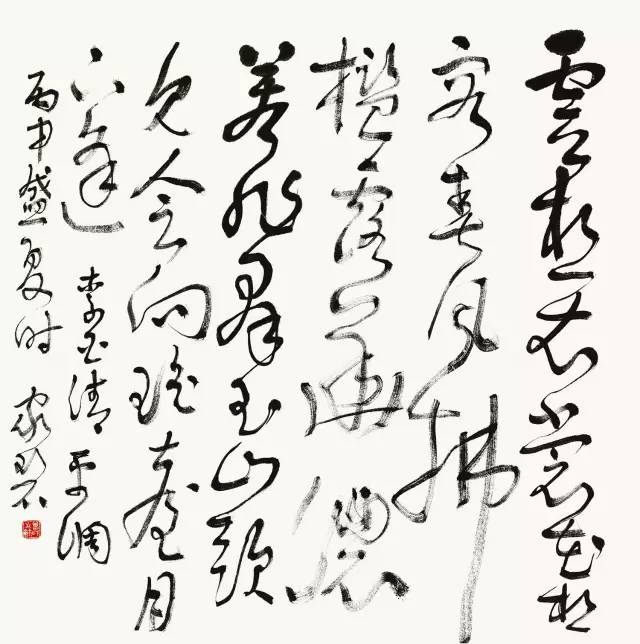 雲想衣裳花想
容春风拂
檻露華濃
若非羣玉山頭
見会向瑶臺月
下逢 李白清平调
丙申盛夏时 家